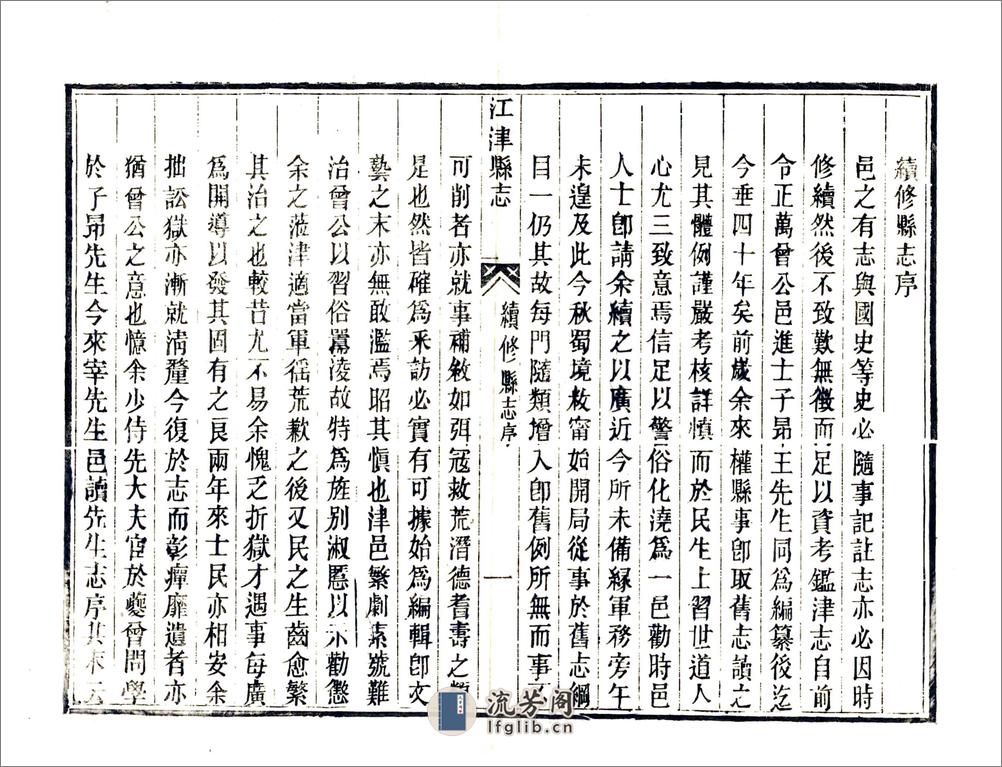 續修縣志序
邑之有志與國史等史必隨事記註志亦必因時
修續然後不致歎無徵而足以資考鑑津志自前
令正萬曾公邑進士子昻王先生同為編纂後迄
今垂四十年矣前歲余來權縣事卽取舊志讀之
見其體例謹嚴考核詳慎而於民生士習世道人
心尤三致意焉信足以警俗化澆為一邑勸時邑
人士卽請余續之以廣近今所未備緣軍務旁午
未遑及此今秋蜀境敉甯始開局從事於舊志綱
目一仍其故每門隨類增入卽舊例所無而事
江津縣志
續修縣志序
一
可削者亦就事補敘如弭冦救荒潛德耆壽之類
是也然皆確為釆訪必實有可據始為編輯卽文
藝之末亦無敢濫焉昭其慎也津邑繁劇素號難
治曾公以習俗嚚淩故特為旌别淑慝以示勸懲
余之蒞津適當軍徭荒歉之後又民之生齒愈繁
其治之也較昔尤不易余愧乏折獄才遇事每廣
為開導以發其固有之良兩年來士民亦相安余
拙訟獄亦漸就淸釐今復於志而彰癉靡遺者亦
猶曾公之意也憶余少侍先大夫宦於夔曾問學
於子昻先生今來宰先生邑讀先生志序其末云
流芳阁
lfglib.cn